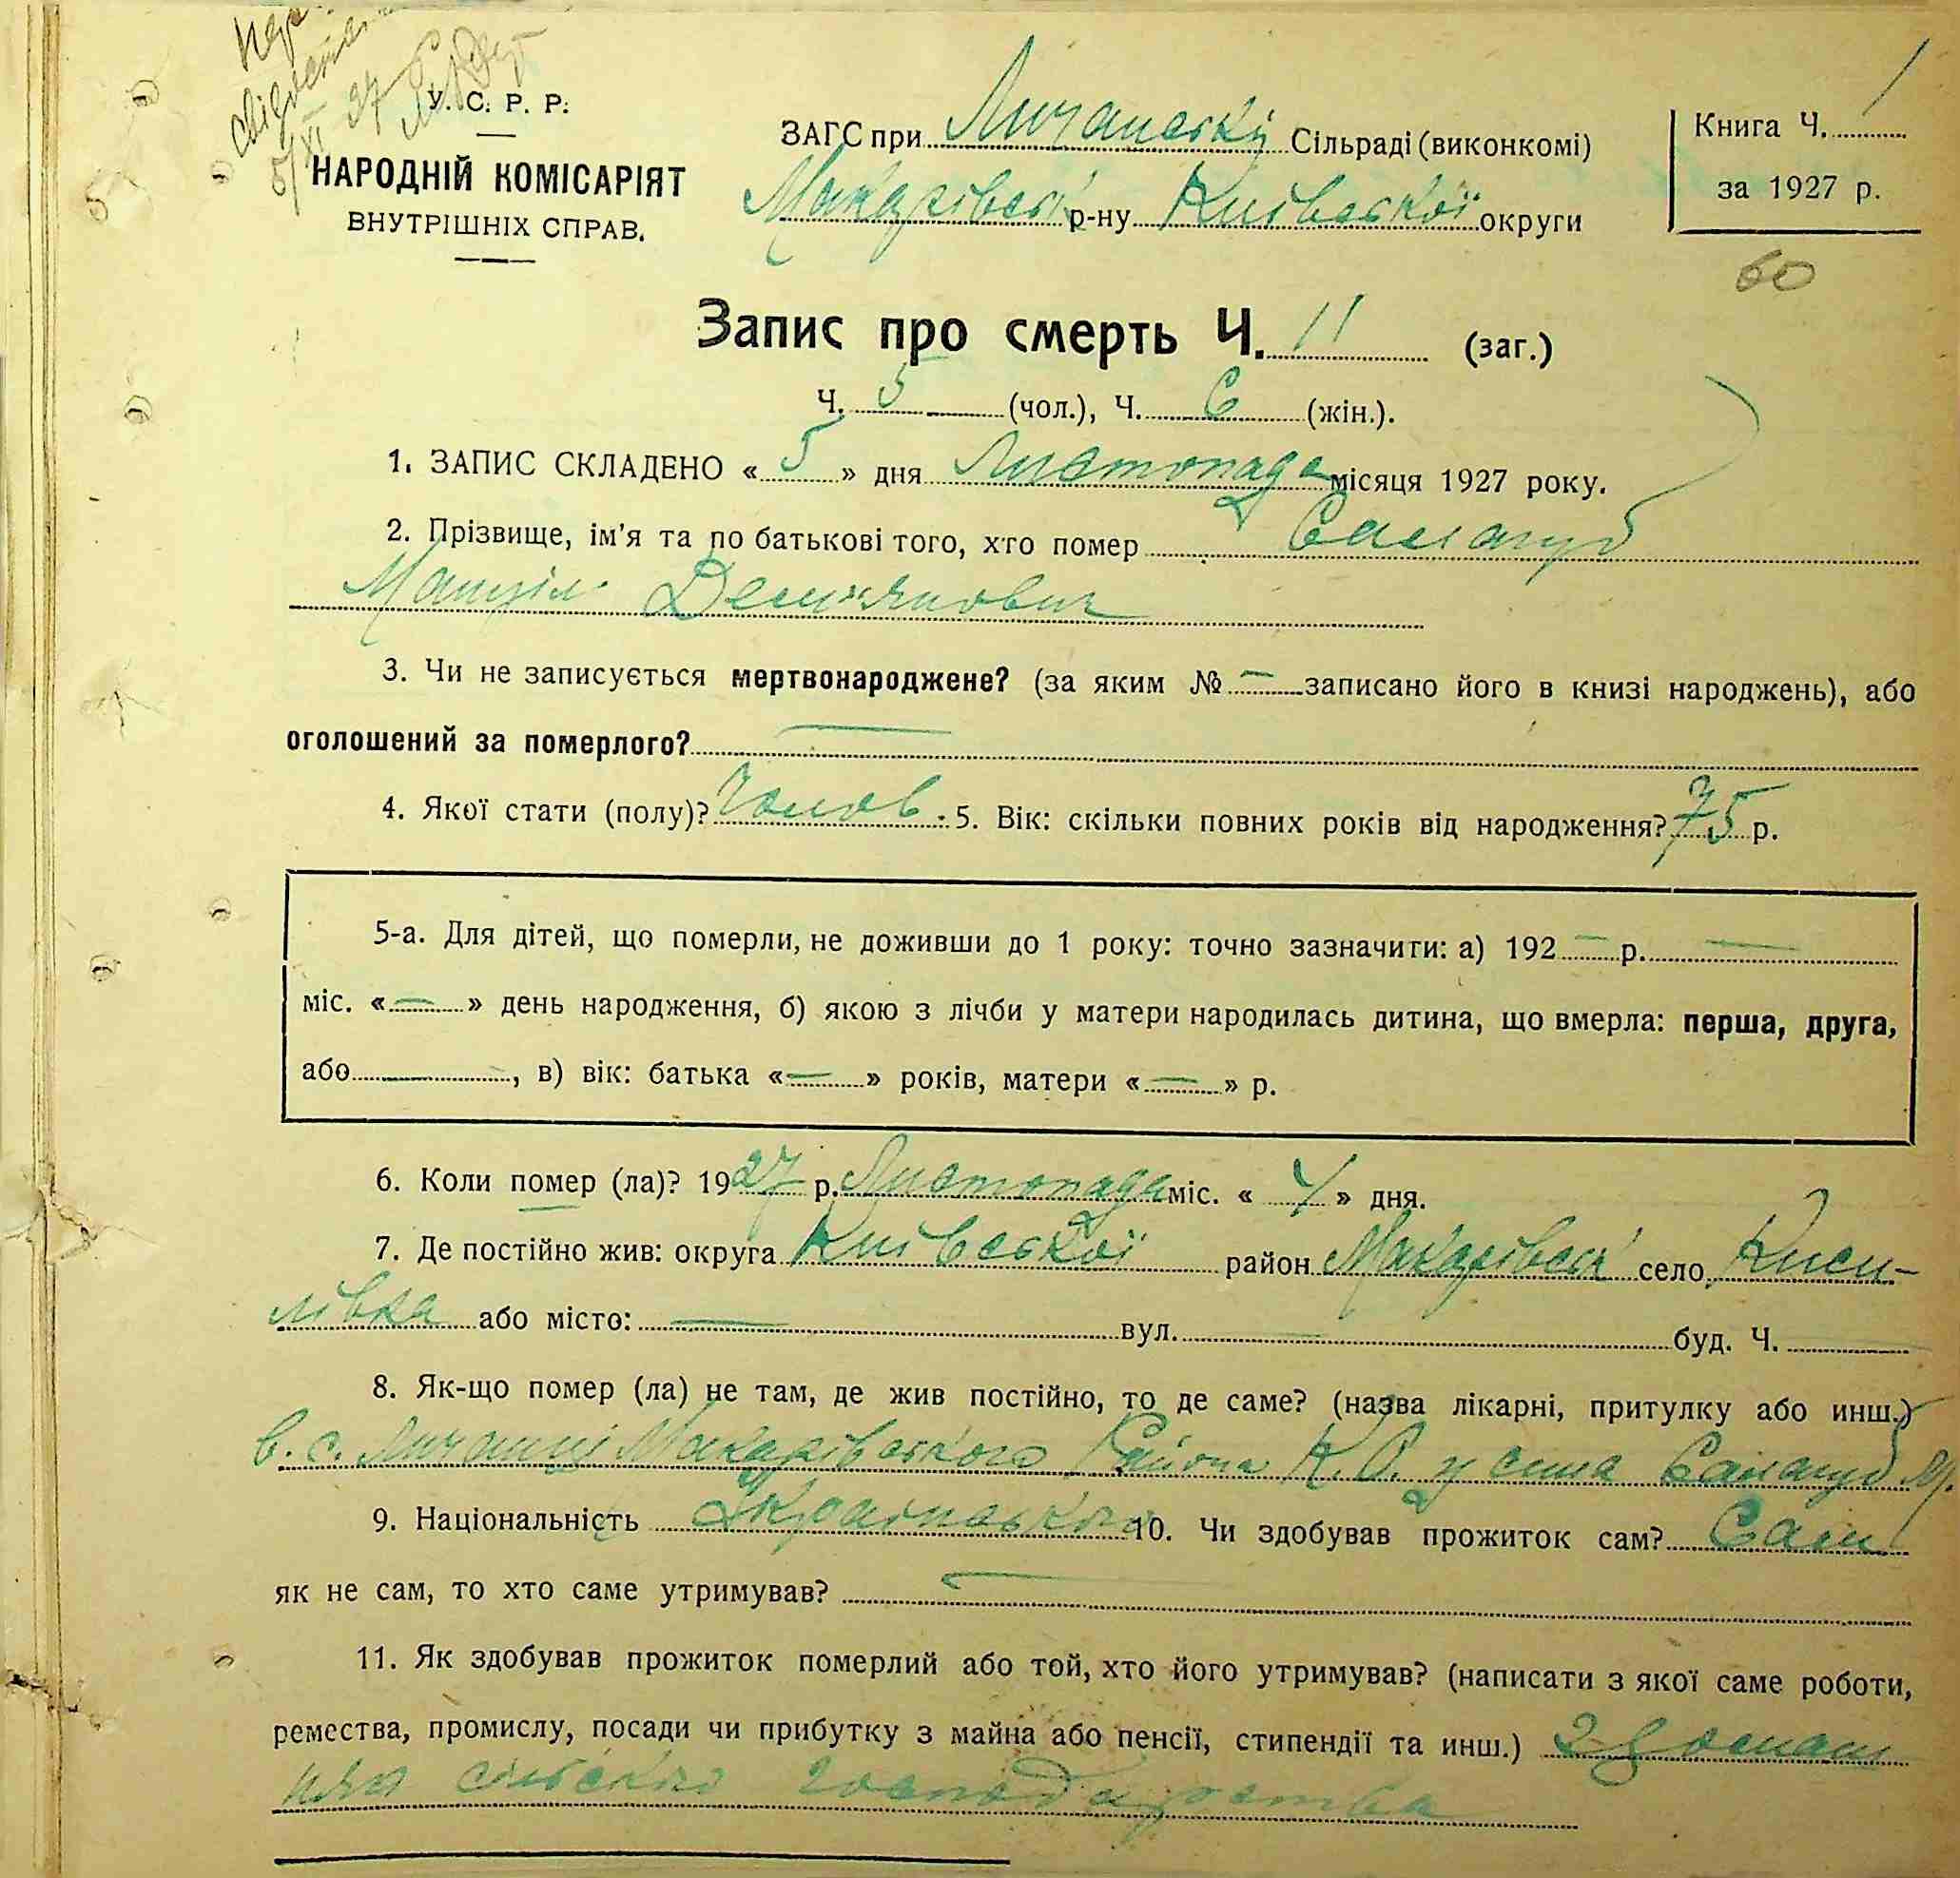 свідоцтво
5/XI 27
У. С. Р. Р.
НАРОДНІЙ КОМІСАРІЯТ
ВНУТРІШНІХ СПРАВ.
ЗАГС при Личанській Сільраді (виконкомі)
Макарівськ р-ну Київської округи
Книга Ч. 1
за 1927 р.
60
Запис про смерть Ч. 11 (заг.)
Ч. 5 (чол.), Ч. 6 (жін.).
1. ЗАПИС СКЛАДЕНО « 5 » дня Листопада місяця 1927 року.
2. Прізвище, ім'я та по батькові того, хто помер Салагуб
Мануіл Дем'янович
3. Чи не записується мертвонароджене? (за яким № — записано його в книзі народжень), або
оголошений за померлого? —
4. Якої стати (полу)? Чолов. 5. Вік: скільки повних років від народження? 75 р.
5-а. Для дітей, що померли, не доживши до 1 року: точно зазначити: а) 192 — р. —
міс. « — » день народження, б) якою з лічби у матери народилась дитина, що вмерла: перша, друга,
або —, в) вік: батька « — » років, матери « — » р.
6. Коли помер (ла)? 1927 р. Листопада міс. « 4 » дня.
7. Де постійно жив: округа Київської район Макарівськ село Киси-
лівка або місто: — вул. — буд. Ч. —
8. Як-що помер (ла) не там, де жив постійно, то де саме? (назва лікарні, притулку або инш.)
в. с. Личанці Макарівського Района К. О. у сина Салагуб М.
9. Національність Українська 10. Чи здобував прожиток сам? Сам
як не сам, то хто саме утримував? —
11. Як здобував прожиток померлий або той, хто його утримував? (написати з якої саме роботи,
ремества, промислу, посади чи прибутку з майна або пенсії, стипендії та инш.)
господарства